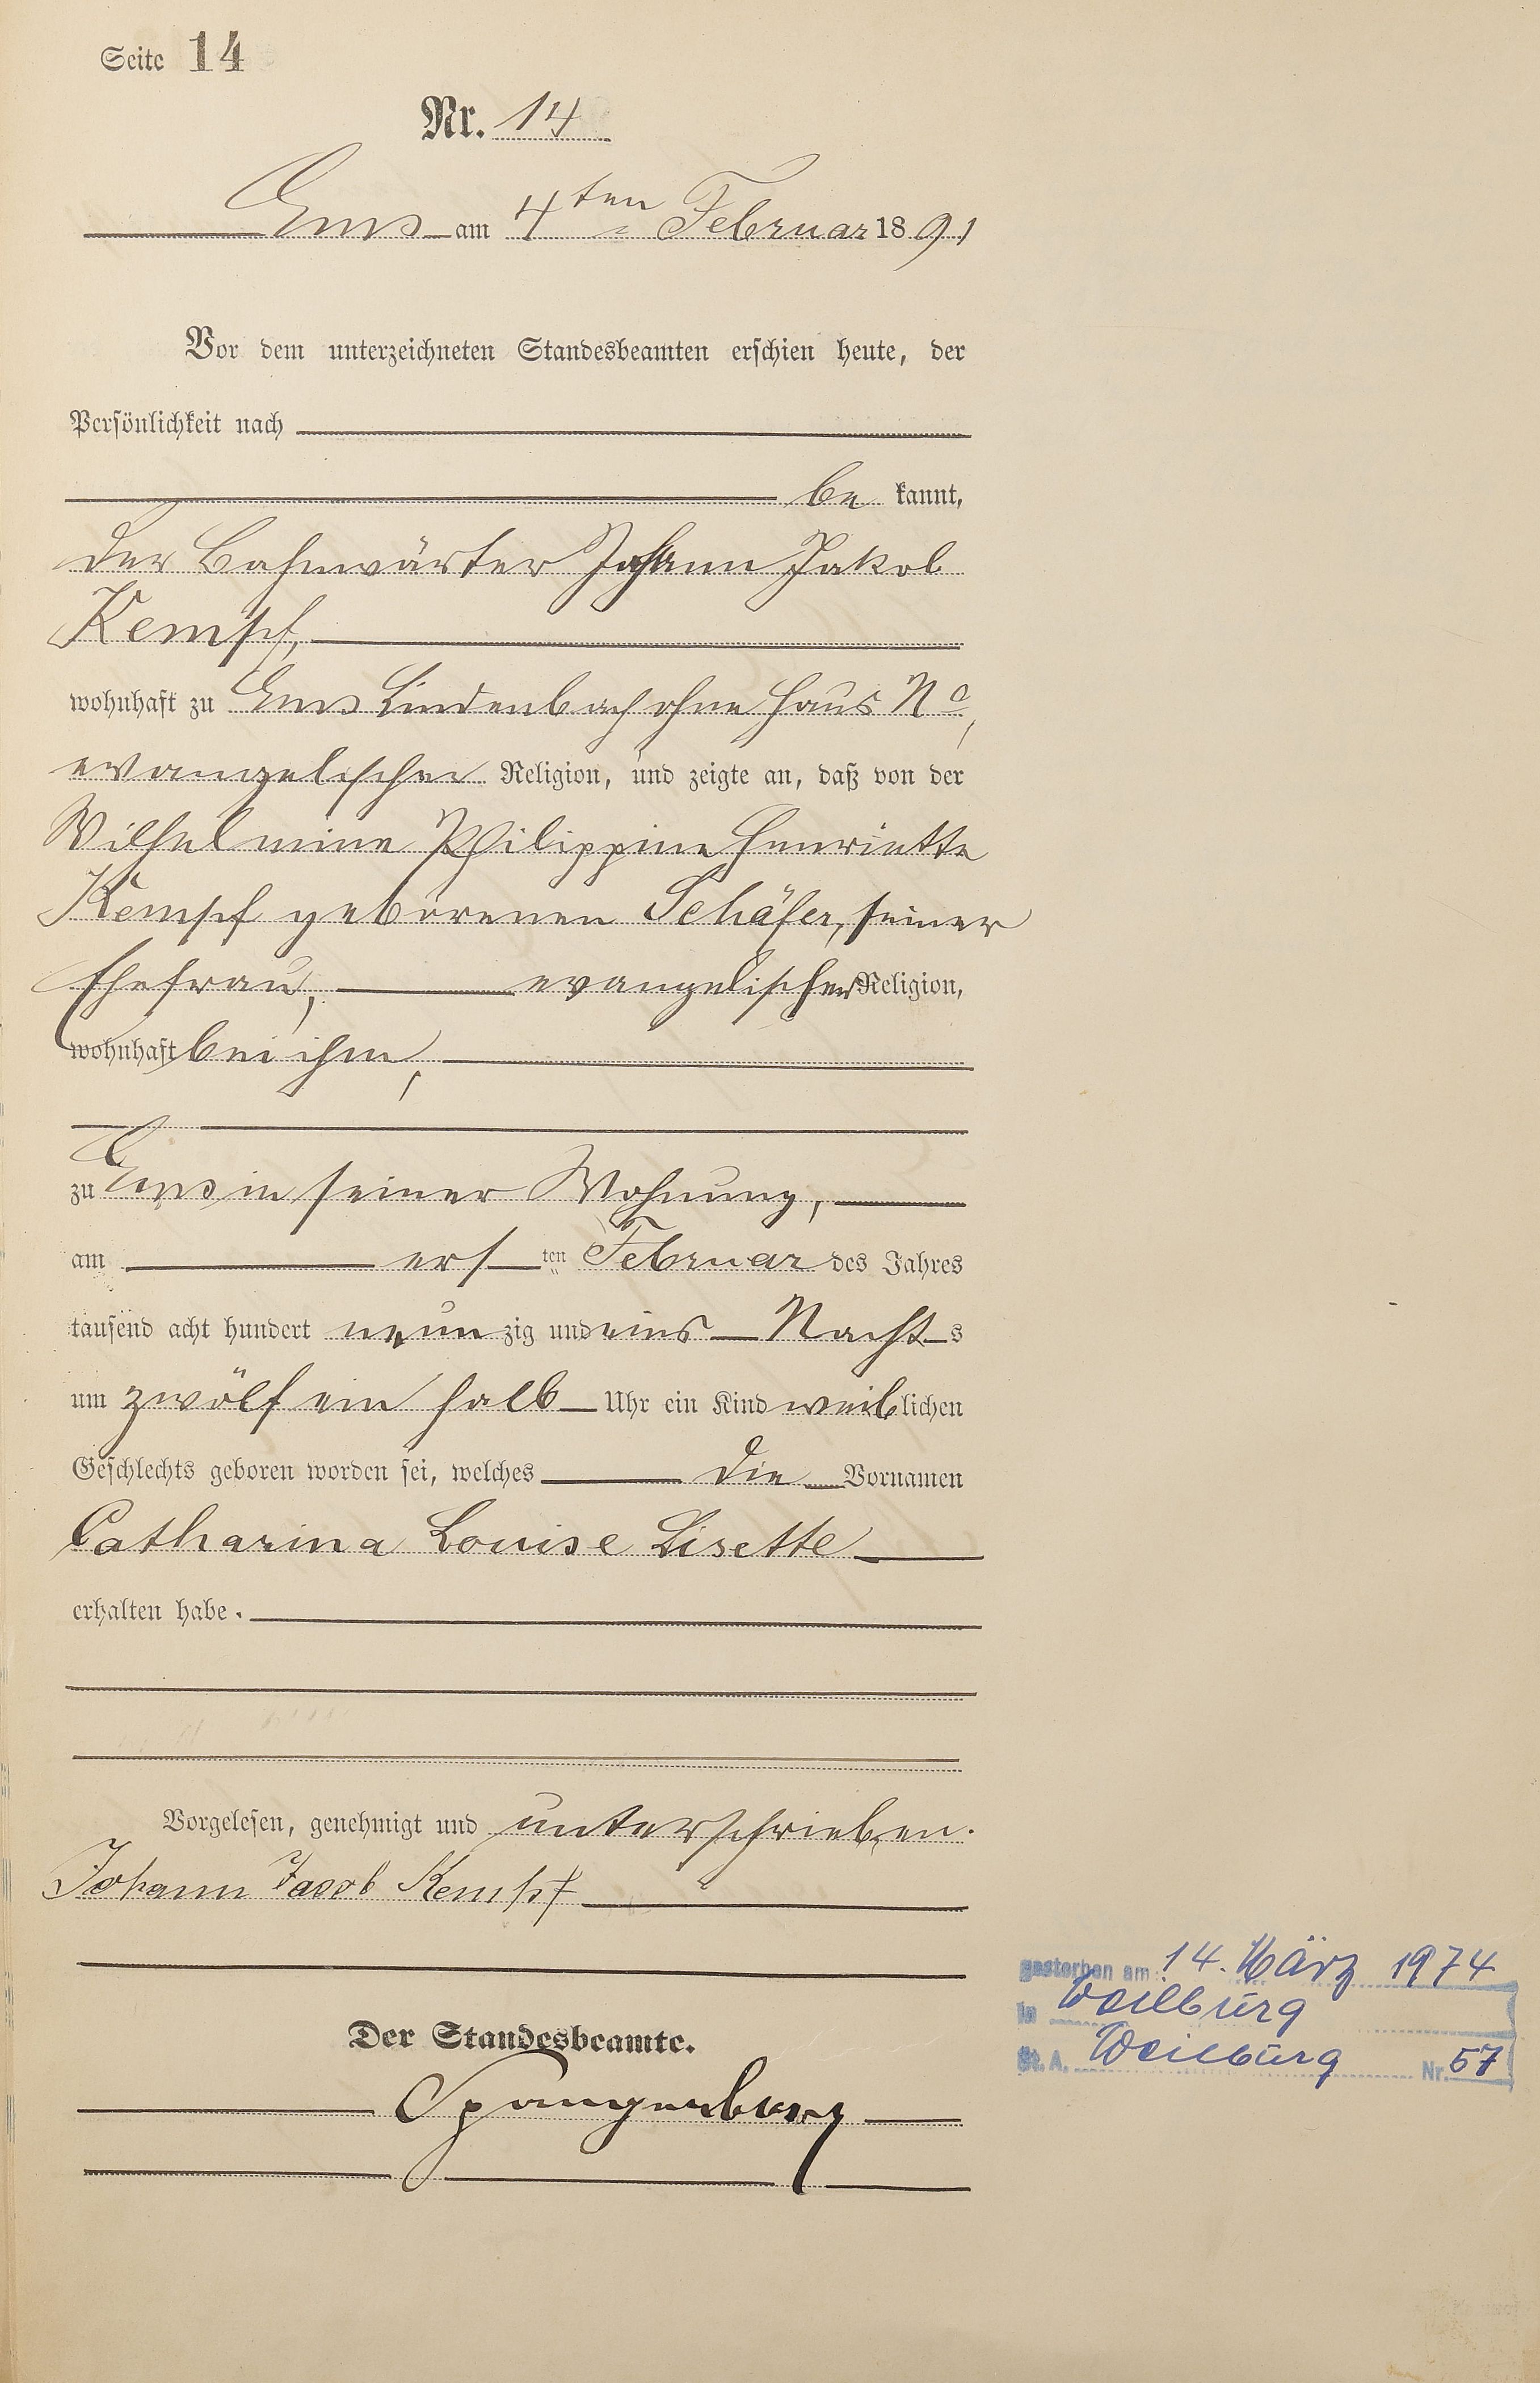 Seite 14
Nr. 14
Ems am 4ten Februar 1891
Vor dem unterzeichneten Standesbeamten erschien heute, der
Persönlichkeit nach
be kannt,
der Bahnwärter Johann Jakob
Kempf,
wohnhaft zu Ems Lindenbach ohne Haus No,
evangelischer Religion, und zeigte an, daß von der
Wilhelmine Philippine Henriette
Kempf geborenen Schäfer, seiner
Ehefrau, evangelischer Religion,
wohnhaft bei ihm,
zu Ems in seiner Wohnung,
am ers ten Februar des Jahres
tausend acht hundert neun zig und eins Nacht s
um zwölf ein halb Uhr ein Kind weib lichen
Geschlechts geboren worden sei, welches die Vornamen
Catharina Louise Lisette
erhalten habe.
Vorgelesen, genehmigt und unterschrieben.
Johann Jacob Kempf
gestorben am 14. März 1974
in Weilburg
St. A. Weilburg Nr. 57
Der Standesbeamte.
Spangenberg